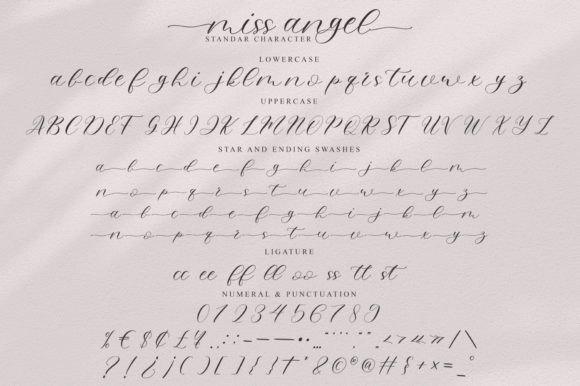 miss angel
STANDAR CHARACTER
LOWERCASE
a b c d e f g h i j k l m n o p q r s t u v w x y z
UPPERCASE
A B C D E F G H I J K L M N O P Q R S T U V W X Y Z
STAR AND ENDING SWASHES
a b c d e f g h i j k l m
n o p q r s t u v w x y z
a b c d e f g h i j k l m
n o p q r s t u v w x y z
LIGATURE
cc ee ff ll oo ss tt st
NUMERAL & PUNCTUATION
0 1 2 3 4 5 6 7 8 9
% € $ ¢ £ ¥ . , : ; - – — · … " ' ‘ ’ “ ” , „ ‹ › « » / | \
? ! ¿ ¡ ( ) [ ] { } † * & © ® @ # { } + × = _ °